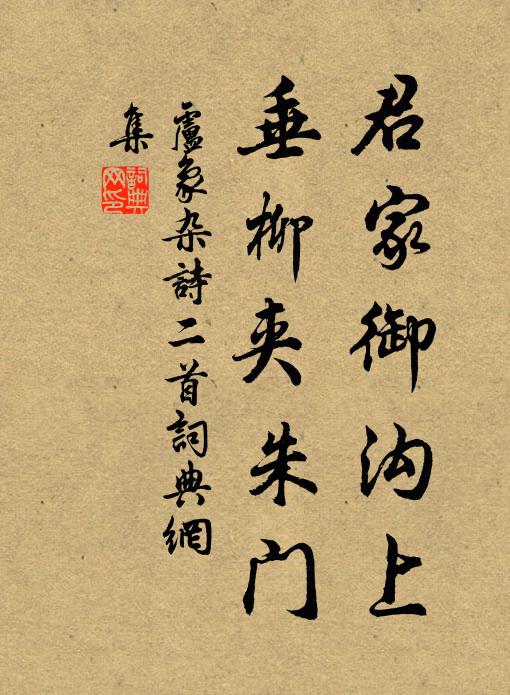 君家御沟上
垂柳夹朱门
盧象杂詩二首詞典網
集
詞典
网印